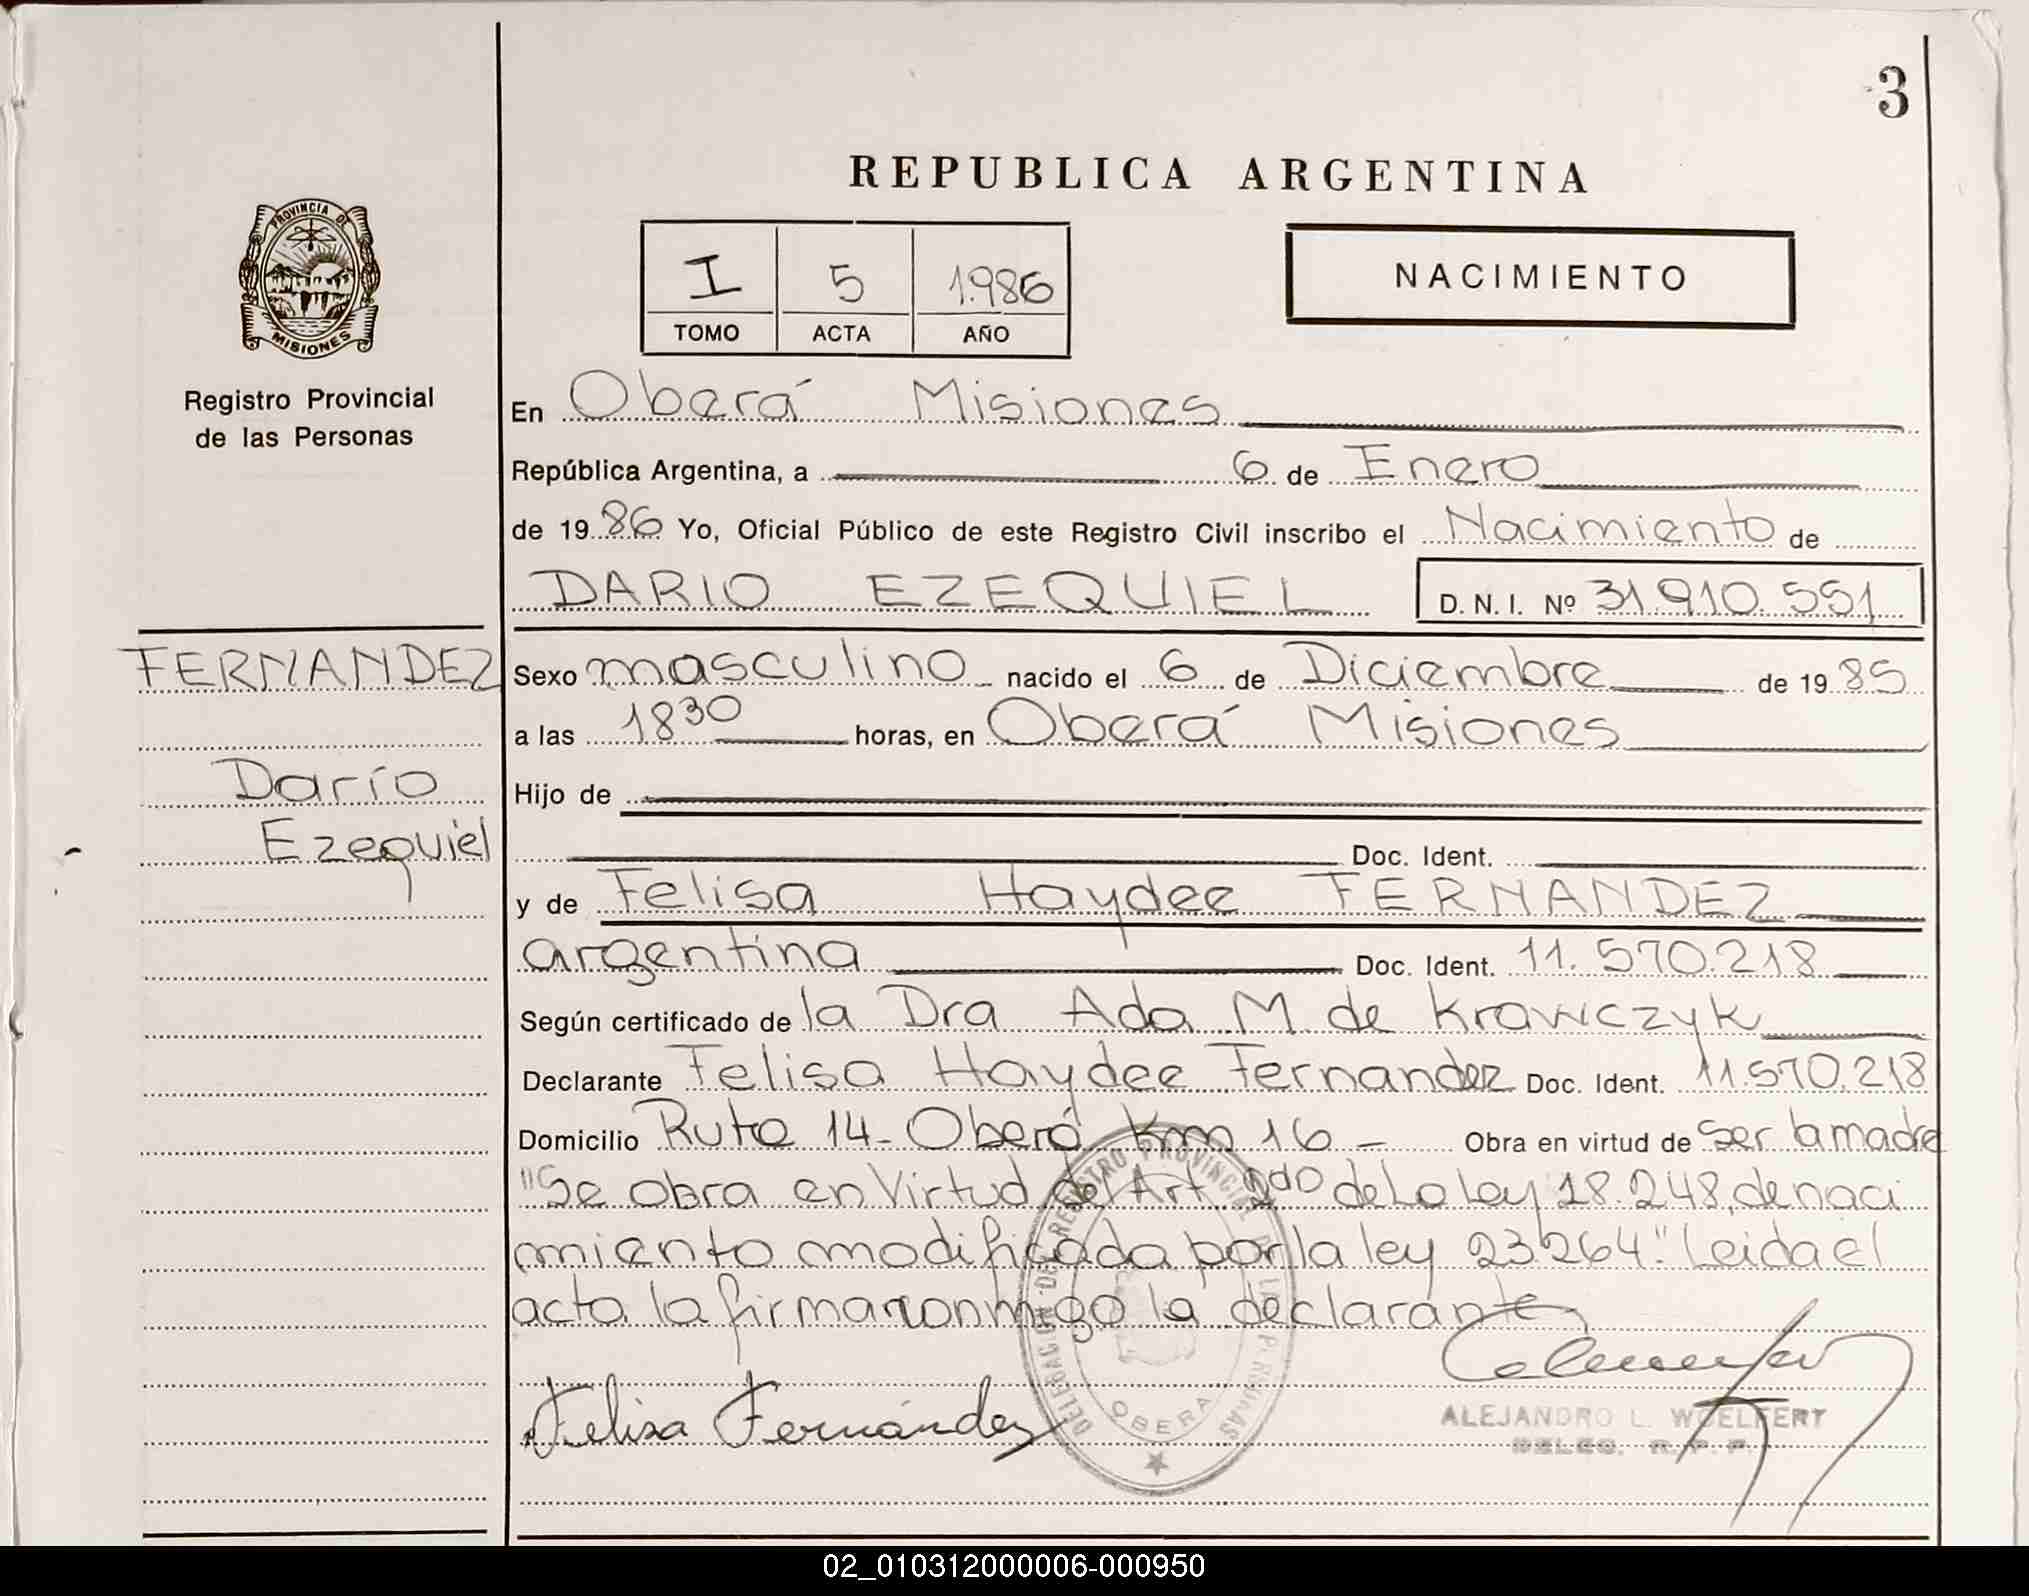 3
REPUBLICA ARGENTINA
PROVINCIA DE
MISIONES
Registro Provincial
de las Personas
I 5 1.986
TOMO ACTA AÑO
NACIMIENTO
En Oberá Misiones
República Argentina, a 6 de Enero
de 19 86 Yo, Oficial Público de este Registro Civil inscribo el Nacimiento de
DARIO EZEQUIEL D. N. I. Nº 31.910.551
FERNANDEZ
Darío
Ezequiel
Sexo masculino nacido el 6 de Diciembre de 19 85
a las 18 30 horas, en Oberá Misiones
Hijo de
Doc. Ident.
y de Felisa Haydee FERNANDEZ
argentina Doc. Ident. 11.570.218
Según certificado de la Dra Ada M de Krawczyk
Declarante Felisa Haydee Fernandez Doc. Ident. 11.570.218
Domicilio Ruta 14 - Oberá Km 16 - Obra en virtud de Ser la madre
"Se obra en Virtud del Art 2do de La Ley 18.248, de naci
miento modificada por la ley 23.264." Leida el
acta la firma conmigo la declarante
Felisa Fernández
DELEGACION DEL REGISTRO PROVINCIAL DE LAS PERSONAS
OBERA
ALEJANDRO L. WOELFERT
DELEG. R. P. P.
02_010312000006-000950